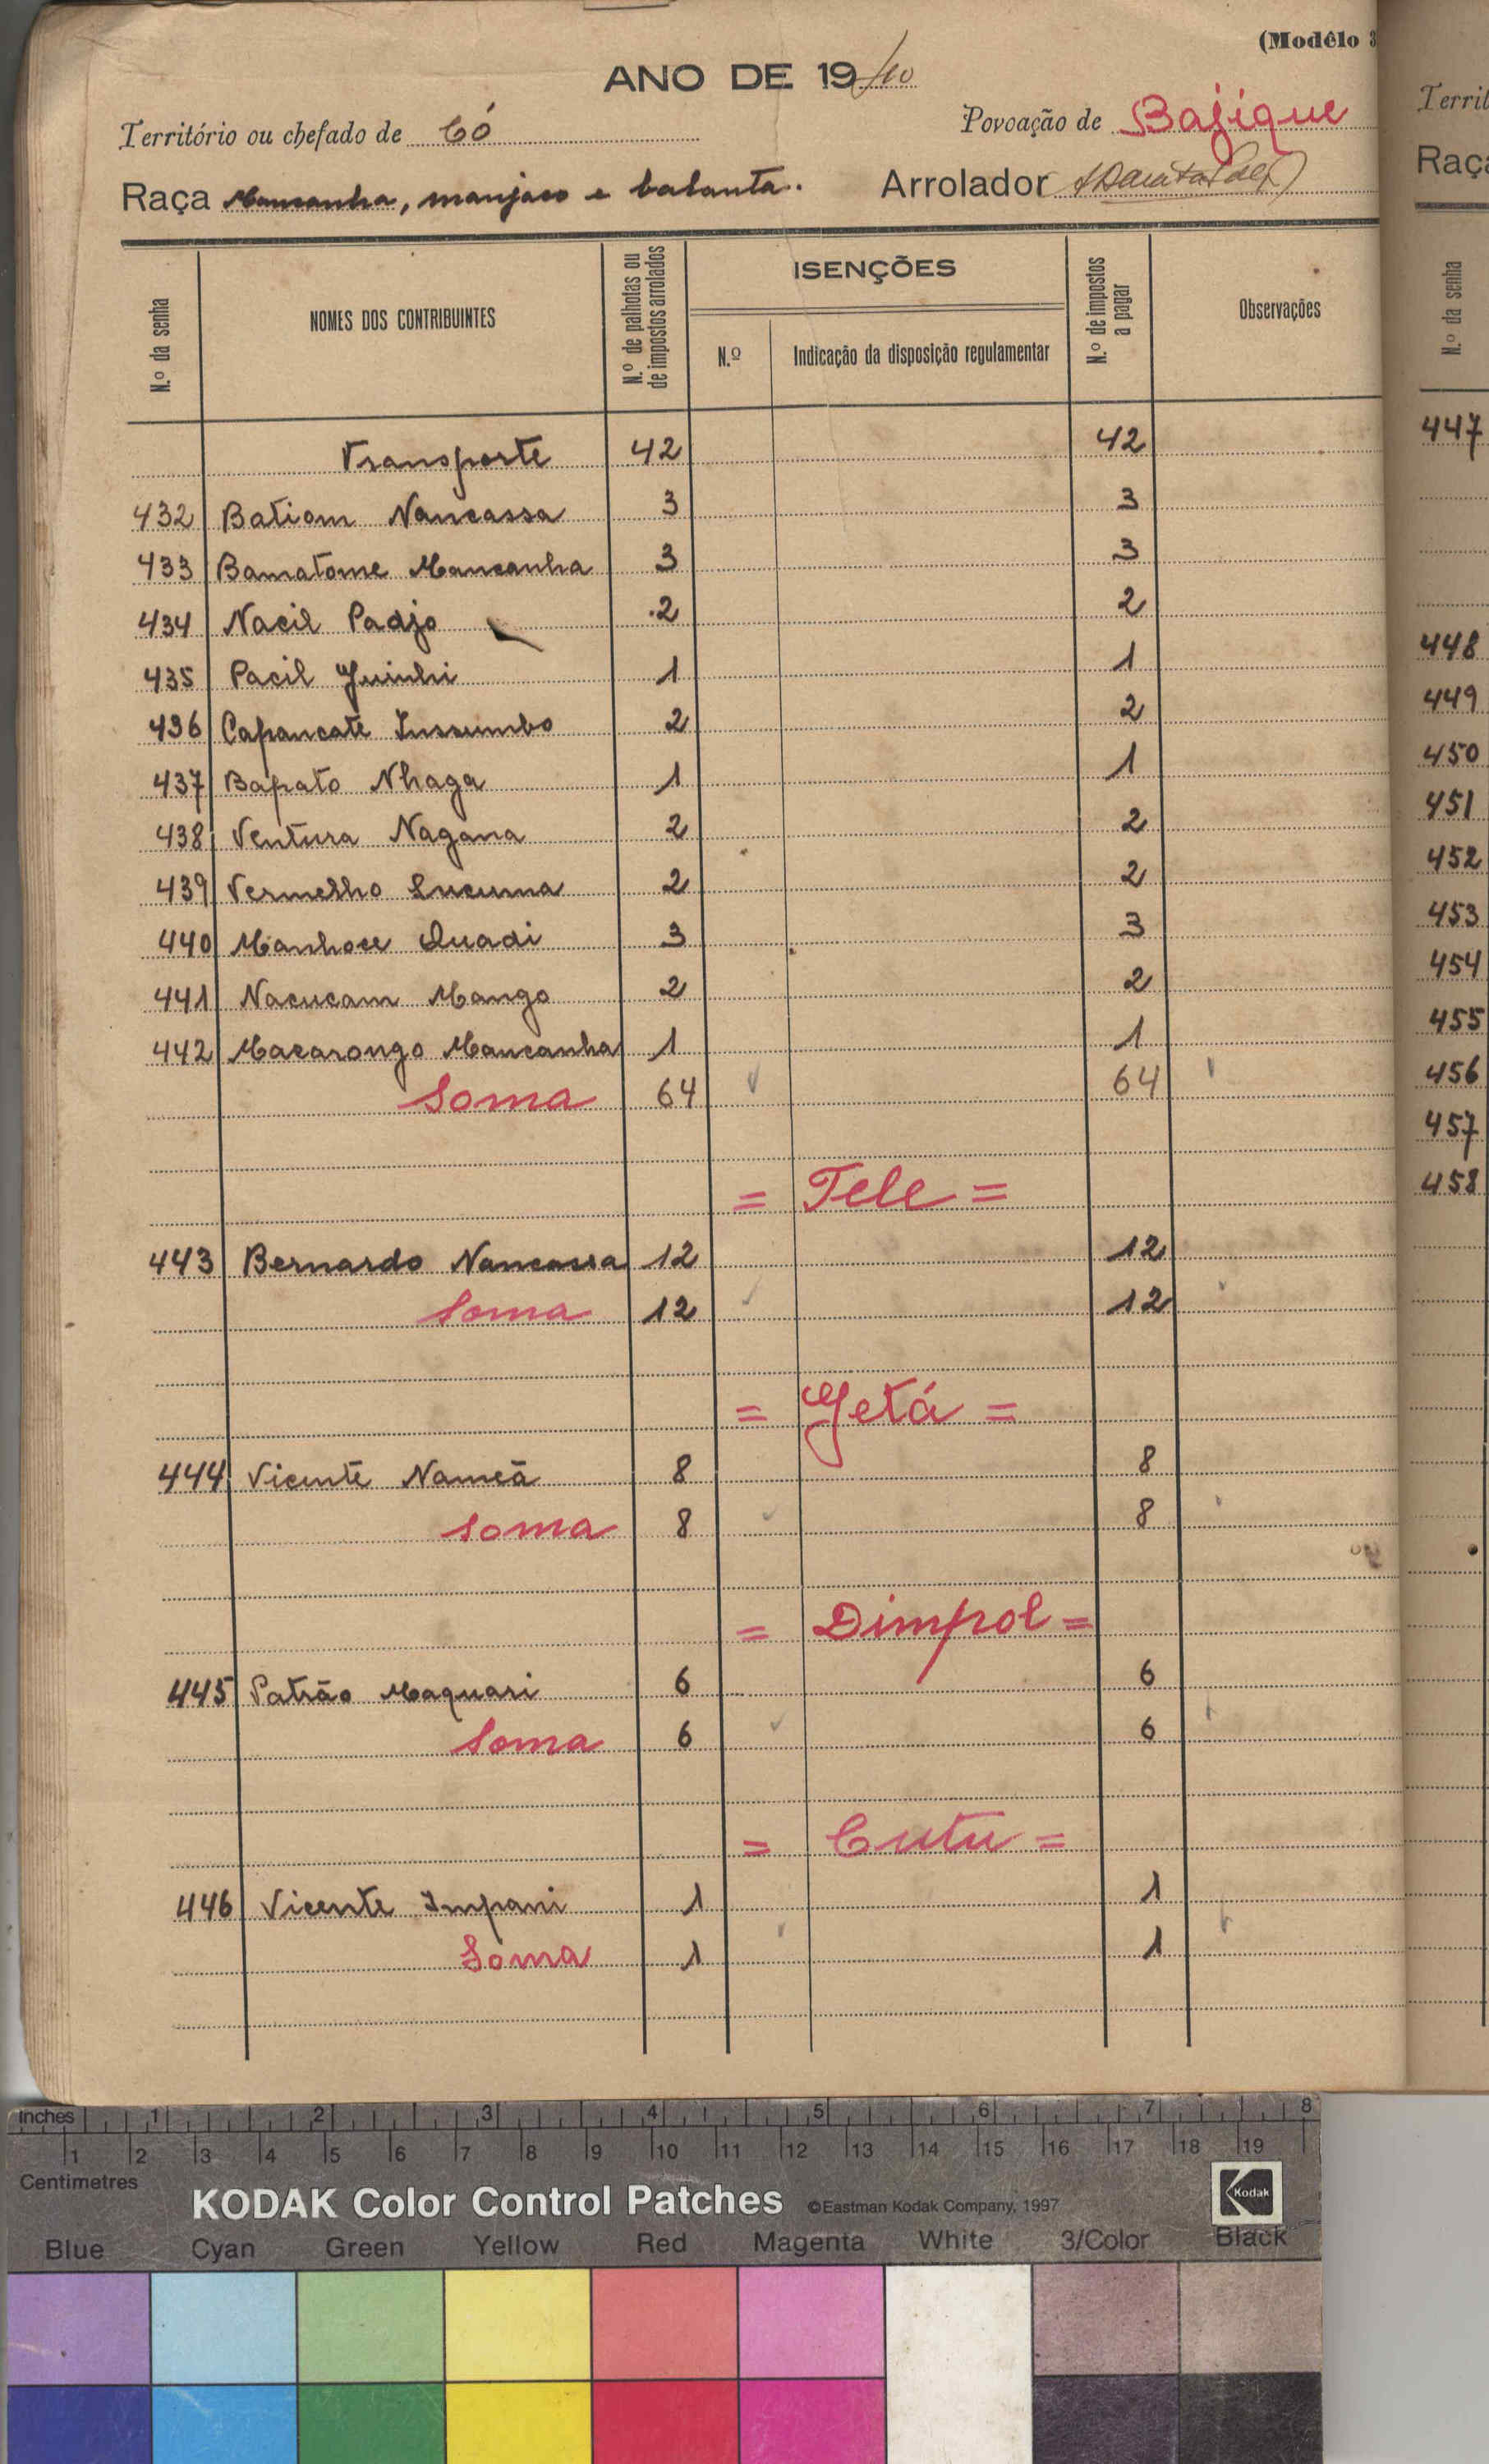 (Modêlo 3
ANO DE 1940
Território ou chefado de Có
Povoação de Bajique
Raça Mancanha, manjaco e balanta. Arrolador
N.º da senha
NOMES DOS CONTRIBUINTES
N.º de palhotas ou de impostos arrolados
ISENÇÕES
N.º
Indicação da disposição regulamentar
N.º de impostos a pagar
Observações
Transporte 42 42
432 Batiam Nancassa 3 3
433 Bamatome Mancanha 3 3
434 Nacil Padjo 2 2
435 Pacil Guinhi 1 1
436 Capancate Inssumbo 2 2
437 Bapato Nhaga 1 1
438 Ventura Nagana 2 2
439 Vermelho Lucuma 2 2
440 Manhoce Quadi 3 3
441 Nacucam Mango 2 2
442 Macarongo Mancanha 1 1
Soma 64 64
= Tele =
443 Bernardo Nancassa 12 12
Soma 12 12
= Getá =
444 Vicente Namcã 8 8
Soma 8 8
= Dimpol =
445 Patrão Maquari 6 6
Soma 6 6
= Cutu =
446 Vicente Impani 1 1
Soma 1 1
Territ
Raça
N.º da senha
447
448
449
450
451
452
453
454
455
456
457
458
Inches 1 2 3 4 5 6 7 8
1 2 3 4 5 6 7 8 9 10 11 12 13 14 15 16 17 18 19
Centimetres
KODAK Color Control Patches ©Eastman Kodak Company, 1997 Kodak
Blue Cyan Green Yellow Red Magenta White 3/Color Black